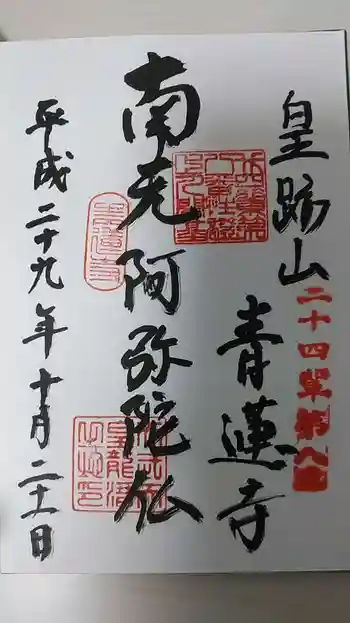 皇跡山
青蓮寺
二十四輩第八番
南无阿弥陀仏
平成二十九年十月二十一日